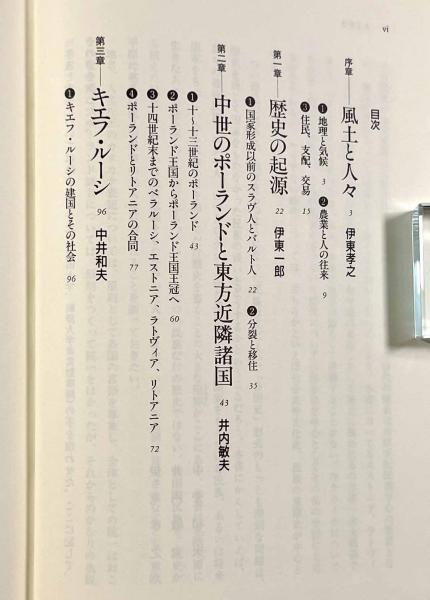 vi
目次
序章――風土と人々 3 伊東孝之
❶ 地理と気候 3 ❷ 農業と人の往来 9
❸ 住民、支配、交易 15
第一章――歴史の起源 22 伊東一郎
❶ 国家形成以前のスラヴ人とバルト人 22 ❷ 分裂と移住 35
第二章――中世のポーランドと東方近隣諸国 43 井内敏夫
❶ 十~十三世紀のポーランド 43
❷ ポーランド王国からポーランド王国王冠へ 60
❸ 十四世紀末までのベラルーシ、エストニア、ラトヴィア、リトアニア 72
❹ ポーランドとリトアニアの合同 77
第三章――キエフ・ルーシ 96 中井和夫
❶ キエフ・ルーシの建国とその社会 96